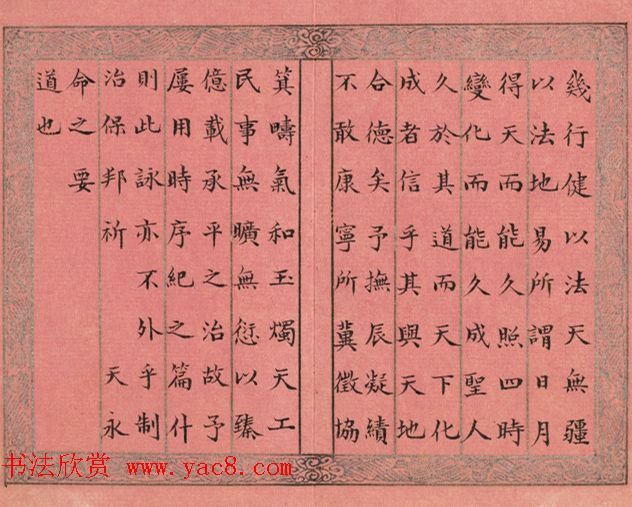 幾行健以法天無疆
以法地易所謂日月
得天而能久照四時
變化而能久成聖人
久於其道而天下化
成者信乎其與天地
合德矣予撫辰凝績
不敢康寧所冀徵協
箕疇氣和玉燭天工
民事無曠無愆以臻
億載承平之治故予
屢用時序紀之篇什
則此詠亦不外乎制
治保邦祈 天永
命之要
道也
书法欣赏 www.yac8.com